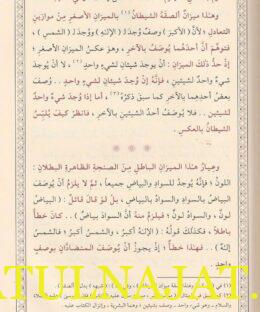 وهذا ميزانٌ ألصقهُ الشيطانُ (١) بالميزانِ الأصغرِ مِنْ موازينِ
التعادلِ ؛ لأنَّ ( الأكبرَ ) وصفٌ وُجدَ لـ( الإلهِ ) ووُجدَ لـ( الشمسِ ) ،
فتوهَّمَ أنَّ أحدَهما يُوصَفُ بالآخرِ ، وهوَ عكسُ الميزانِ الأصغرِ ؛
إذْ حدُّ ذلكَ الميزانِ : أنْ يوجدَ شيئانِ لشيءٍ واحدٍ ، لا أنْ يوجدَ
شيءٌ واحدٌ لشيئينِ ، فإنَّهُ إنْ وُجدَ شيئانِ لشيءٍ واحدٍ . . وُصفَ
بعضُ أحدِهما بالآخرِ كما سبقَ ذكرُهُ (٢) ، أما إذا وُجدَ شيءٌ واحدٌ
لشيئينِ . . فلا يُوصَفُ أحدُ الشيئينِ بالآخرِ ، فانظرْ كيفَ يُلبِّسُ
الشيطانُ بالعكسِ .
* * *
وعيارُ هذا الميزانِ الباطلِ مِنَ الصنجةِ الظاهرةِ البطلانِ :
اللونُ ؛ فإنَّهُ يوجدُ للسوادِ والبياضِ جميعاً ، ثمَّ لا يلزمُ أنْ يُوصَفَ
البياضُ بالسوادِ ولا السوادُ بالبياضِ ، بلْ لوْ قالَ قائلٌ : ( البياضُ
لونٌ ، والسوادُ لونٌ ؛ فيلزمُ منهُ أنَّ السوادَ بياضٌ ) . . كانَ خطأً
باطلاً ، فكذلكَ قولُهُ : ( الإلهُ أكبرُ ، والشمسُ أكبرُ ، فالشمسُ
إلهٌ ) . . فهذا خطأٌ ؛ إذْ يجوزُ أنْ يُوصَفَ المتضادَّانِ بوصفٍ
واحدٍ .
ATULNAJAT.C